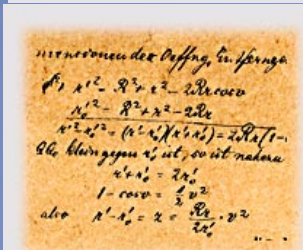 mensionen der Oeffng, Entfernge
r'² = R² + r² − 2Rr cos v
r₀'² = R² + r² − 2Rr
r'² − r₀'² = (r' − r₀')(r' + r₀') = 2Rr(1−
klein gegen r₀' ist, so ist nahezu
r' + r₀' = 2r₀'
1 − cos v = ½ v²
also r' − r₀' = z = Rr/2r₀' · v²